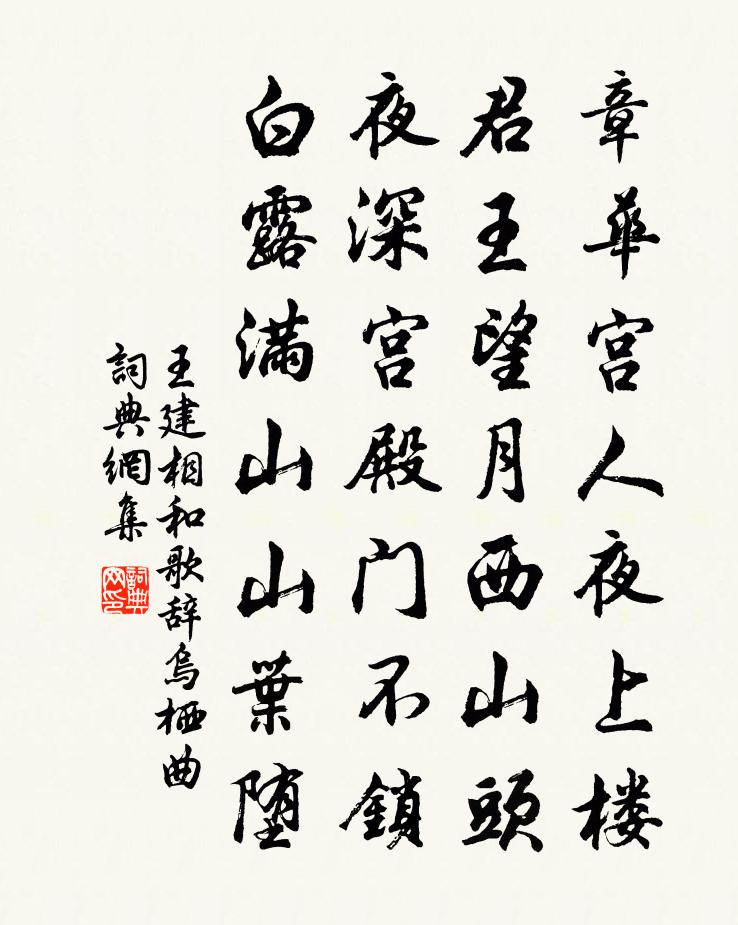 章華宫人夜上楼
君王望月西山頭
夜深宫殿门不鎖
白露满山山葉堕
王建相和歌辞烏栖曲
詞典網集
詞典網印